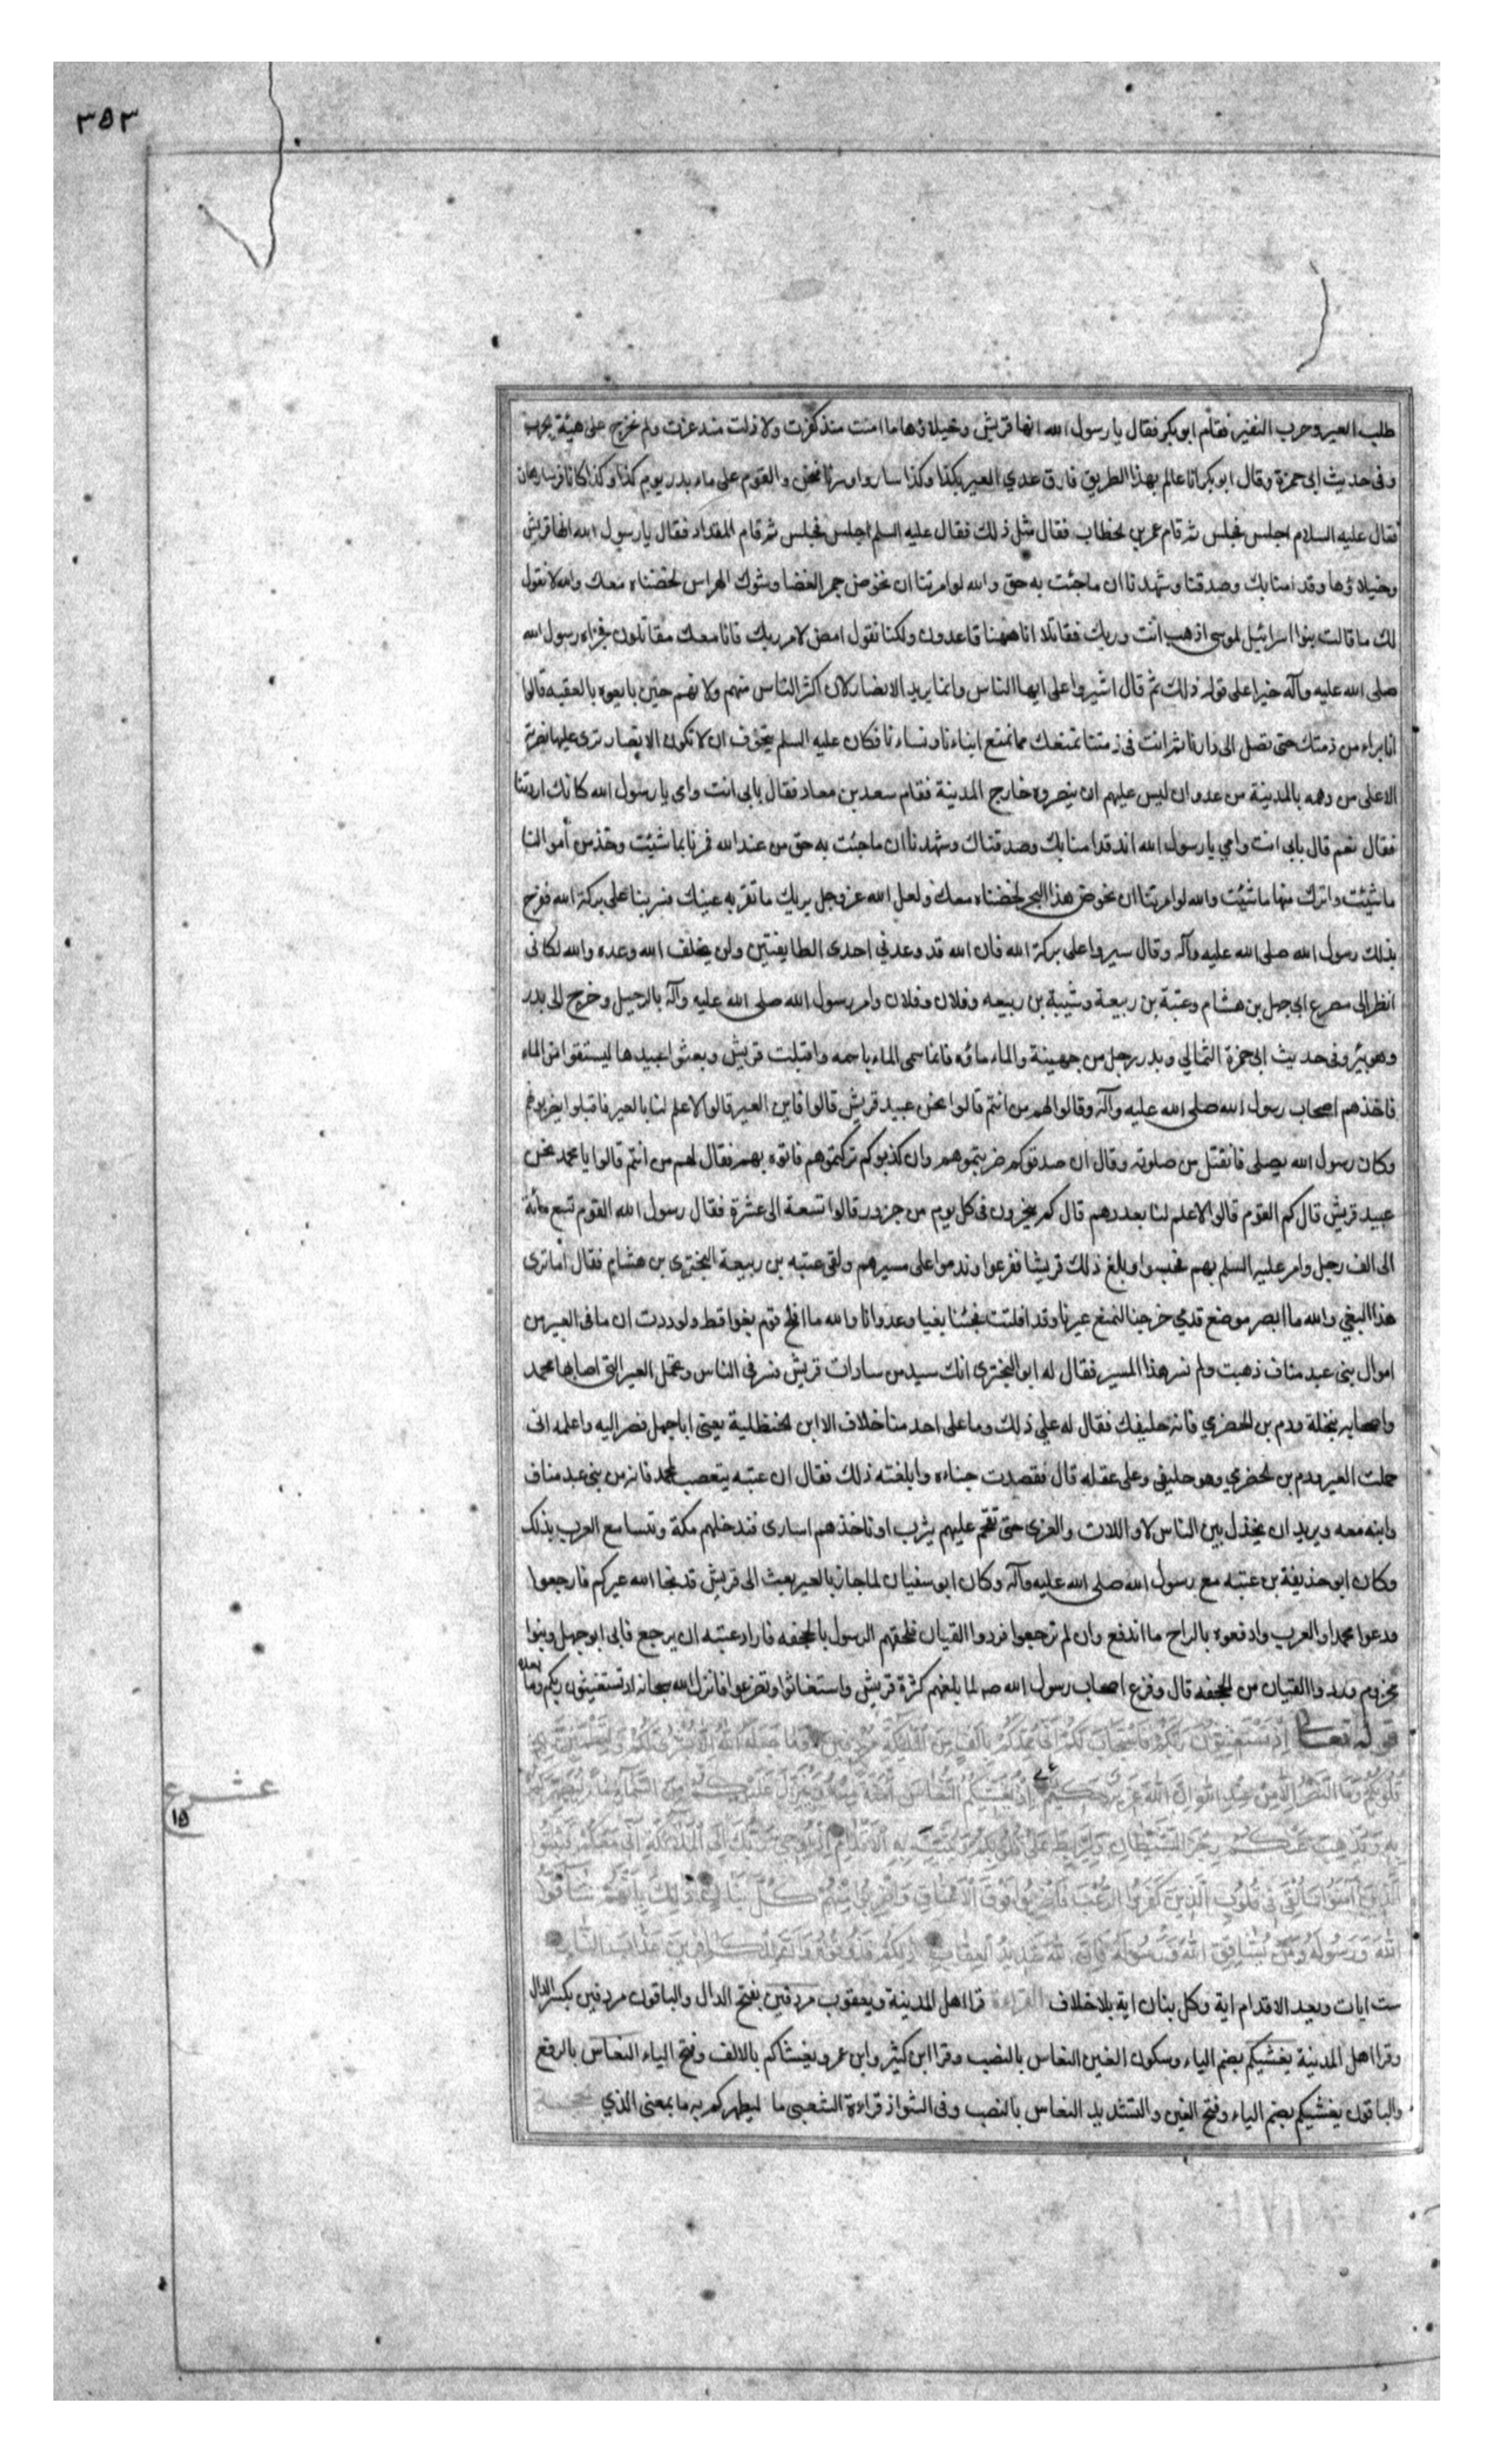 ٣٥٣
طلب العير وحرب النفير فقام ابو بكر فقال يا رسول الله انها قريش وخيلاؤها ما امنت منذ كفرت ولا ذلت منذ عزت ولم نخرج على هيئة الحرب
وفى حديث ابى حمزة وقال ابو بكر انا عالم بهذا الطريق فارق عدي العير بكذا وكذا ساروا وسرنا فنحن والقوم على ماء بدر يوم كذا وكذا كانا فرسا رهان
فقال عليه السلام اجلس فجلس ثم قام عمر بن الخطاب فقال مثل ذلك فقال عليه السلم اجلس فجلس ثم قام المقداد فقال يا رسول الله انها قريش
وخيلاؤها وقد امنا بك وصدقنا وشهدنا ان ما جئت به حق والله لو امرتنا ان نخوض جمر الغضا وشوك الهراس لخضناه معك والله لا نقول
لك ما قالت بنوا اسرائيل لموسى اذهب انت وربك فقاتلا انا ههنا قاعدون ولكنا نقول امض لامر ربك فانا معك مقاتلون فجزاه رسول الله
صلى الله عليه وآله خيرا على قوله ذلك ثم قال اشيروا على ايها الناس وانما يريد الانصار لان اكثر الناس منهم ولانهم حين بايعوه بالعقبه قالوا
انا براء من ذمتك حتى تصل الى دارنا ثم انت فى ذمتنا نمنعك مما نمنع ابناءنا ونساءنا فكان عليه السلم يتخوف ان لا تكون الانصار ترى عليها نصرته
الا على من دهمه بالمدينة من عدو ان ليس عليهم ان ينصروه خارج المدينة فقام سعد بن معاد فقال بابى انت وامى يا رسول الله كانك اردتنا
فقال نعم قال بابى انت وامي يا رسول الله انا قد امنا بك وصدقناك وشهدنا ان ما جئت به حق من عند الله فمرنا بما شئت وخذ من أموالنا
ما شئت واترك منها ما شئت والله لو امرتنا ان نخوض هذا البحر لخضناه معك ولعل الله عز وجل يريك ما تقر به عينك فسر بنا على بركة الله ففرح
بذلك رسول الله صلى الله عليه وآله وقال سيروا على بركة الله فان الله قد وعدني احدى الطايفتين ولن يخلف الله وعده والله لكانى
انظر الى مصرع ابى جهل بن هشام وعتبة بن ربيعة وشيبة بن ربيعه وفلان وفلان وامر رسول الله صلى الله عليه وآله بالرحيل وخرج الى بدر
وهو بئر وفى حديث ابى حمزة الثمالي وبدر رجل من جهينة والماء ماؤه فانما سمى الماء باسمه واقبلت قريش وبعثوا عبيدها ليستقوا من الماء
فاخذهم اصحاب رسول الله صلى الله عليه وآله وقالوا لهم من انتم قالوا نحن عبيد قريش قالوا فاين العير قالوا لا علم لنا بالعير فاقبلوا يضربونهم
وكان رسول الله يصلى فانفتل من صلوته وقال ان صدقوكم ضربتموهم وان كذبوكم تركتموهم فاتوه بهم فقال لهم من انتم قالوا يا محمد نحن
عبيد قريش قال كم القوم قالوا لا علم لنا بعددهم قال كم ينحرون فى كل يوم من جزور قالوا تسعة الى عشرة فقال رسول الله القوم تسع مائة
الى الف رجل وامر عليه السلم بهم فحبسوا وبلغ ذلك قريشا ففزعوا وندموا على مسيرهم ولقى عتبه بن ربيعة البخترى بن هشام فقال أما ترى
هذا البغي والله ما ابصر موضع قدمي خرجنا لنمنع عيرنا وقد افلتت فجئنا بغيا وعدوانا والله ما افلح قوم بغوا قط ولوددت ان ما فى العير من
اموال بنى عبد مناف ذهبت ولم نسر هذا المسير فقال له ابو البخترى انك سيد من سادات قريش فسر فى الناس وتحمل العير التى اصابها محمد
واصحابه بنخلة ودم بن الحضرمي فانه حليفك فقال له علي ذلك وما على احد منا خلاف الا ابن الحنظلية يعنى ابا جهل فصر اليه واعلمه انى
حملت العير ودم بن الحضرمي وهو حليفى وعلى عقله قال فقصدت خباءه وابلغته ذلك فقال ان عتبه يتعصب لمحمد فانه من بنى عبد مناف
وابنه معه ويريد ان يخذل بين الناس لا واللات والعزى حتى نقحم عليهم يثرب او ناخذهم اسارى فندخلهم مكة وتتسامع العرب بذلك
وكان ابو حذيفة بن عتبه مع رسول الله صلى الله عليه وآله وكان ابو سفيان لما جاز بالعير بعث الى قريش قد نجا الله عيركم فارجعوا
ودعوا محمدا والعرب وادفعوه بالراح ما اندفع وان لم ترجعوا فردوا القيان فلحقهم الرسول بالجحفه فاراد عتبه ان يرجع فابى ابو جهل وبنوا
مخزوم وردوا القيان من الجحفه قال وفزع اصحاب رسول الله صه لما بلغهم كثرة قريش واستغاثوا وتضرعوا فانزل الله سبحانه اذ تستغيثون ربكم وما بعده
قوله تعالى إذ تستغيثون ربكم فاستجاب لكم أني ممدكم بألف من الملائكة مردفين وما جعله الله إلا بشرى لكم ولتطمئن به
قلوبكم وما النصر إلا من عند الله إن الله عزيز حكيم إذ يغشيكم النعاس أمنة منه وينزل عليكم من السماء ماء ليطهركم
به ويذهب عنكم رجز الشيطان وليربط على قلوبكم ويثبت به الأقدام إذ يوحي ربك إلى الملائكة أني معكم فثبتوا
الذين آمنوا سألقي في قلوب الذين كفروا الرعب فاضربوا فوق الأعناق واضربوا منهم كل بنان ذلك بأنهم شاقوا
الله ورسوله ومن يشاقق الله ورسوله فإن الله شديد العقاب ذلكم فذوقوه وأن للكافرين عذاب النار
ست ايات ويعد الاقدام اية وكل بنان اية بلا خلاف القراءة قرا اهل المدينة ويعقوب مردفين بفتح الدال والباقون مردفين بكسر الدال
وقرا اهل المدينة يغشيكم بضم الياء وسكون الغين النعاس بالنصب وقرا ابن كثير وابن عمرو يغشاكم بالالف وفتح الياء النعاس بالرفع
والباقون يغشيكم بضم الياء وفتح الغين والتشديد النعاس بالنصب وفى الشواذ قراءة الشعبى ما ليطهركم به ما بمعنى الذي
عشر ع
١٥